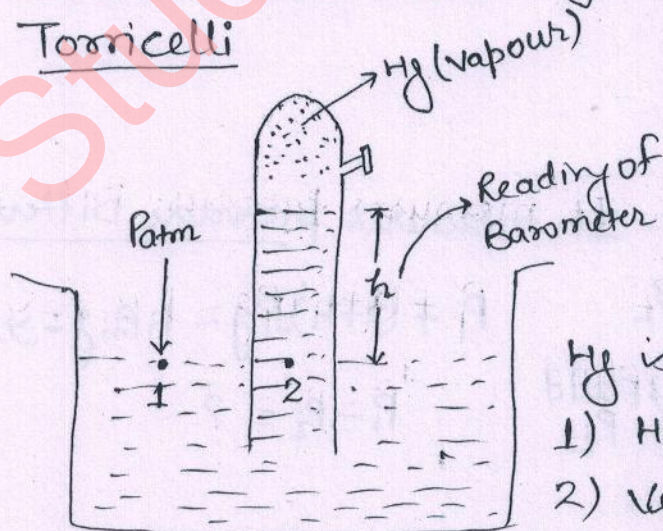 Torricelli
Hg (vapour)
Reading of
Barometer
Patm
h
1
2
Hg is
1) H
2) V
Stu